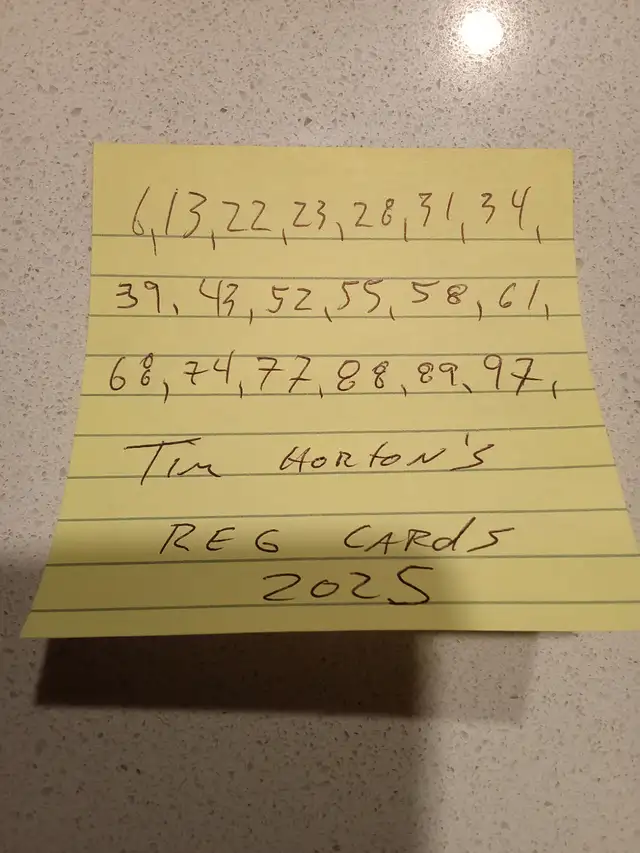 6, 13, 22, 23, 28, 31, 34,
39, 43, 52, 55, 58, 61,
68, 74, 77, 88, 89, 97,
Tim HORtON'S
REG CARdS
2025